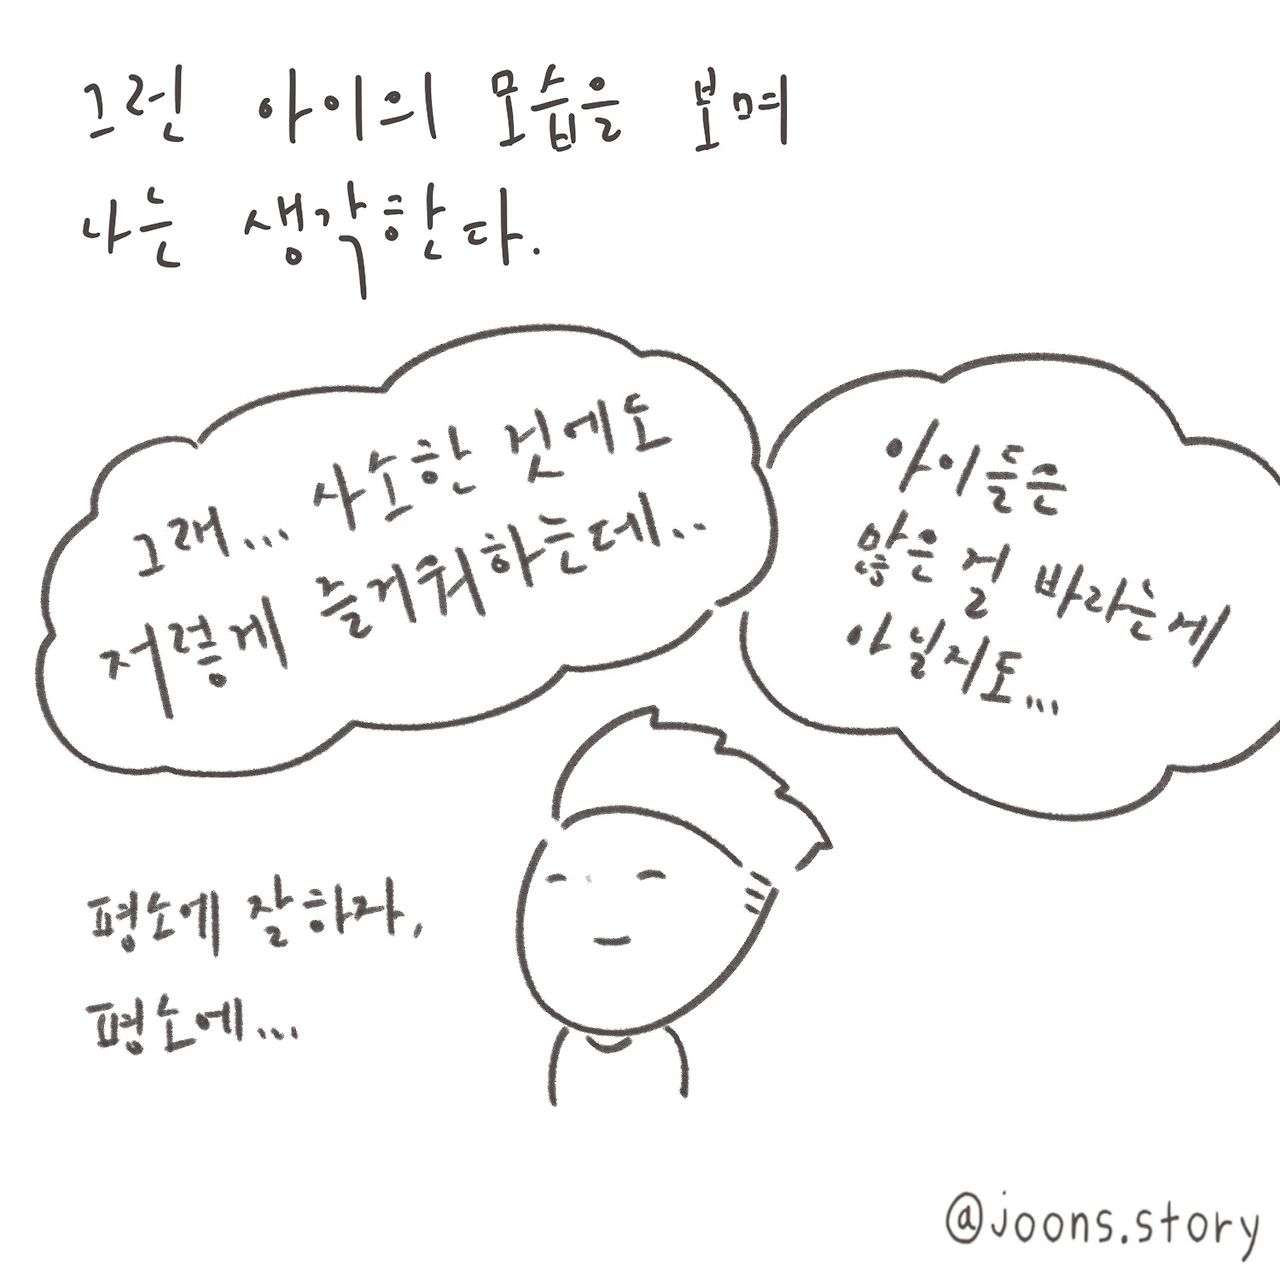 그런 아이의 모습을 보며
나는 생각한다.
그래... 사소한 것에도
저렇게 즐거워하는데...
아이들은
많은 걸 바라는게
아닐지도...
평소에 잘하자,
평소에...
@joons.story